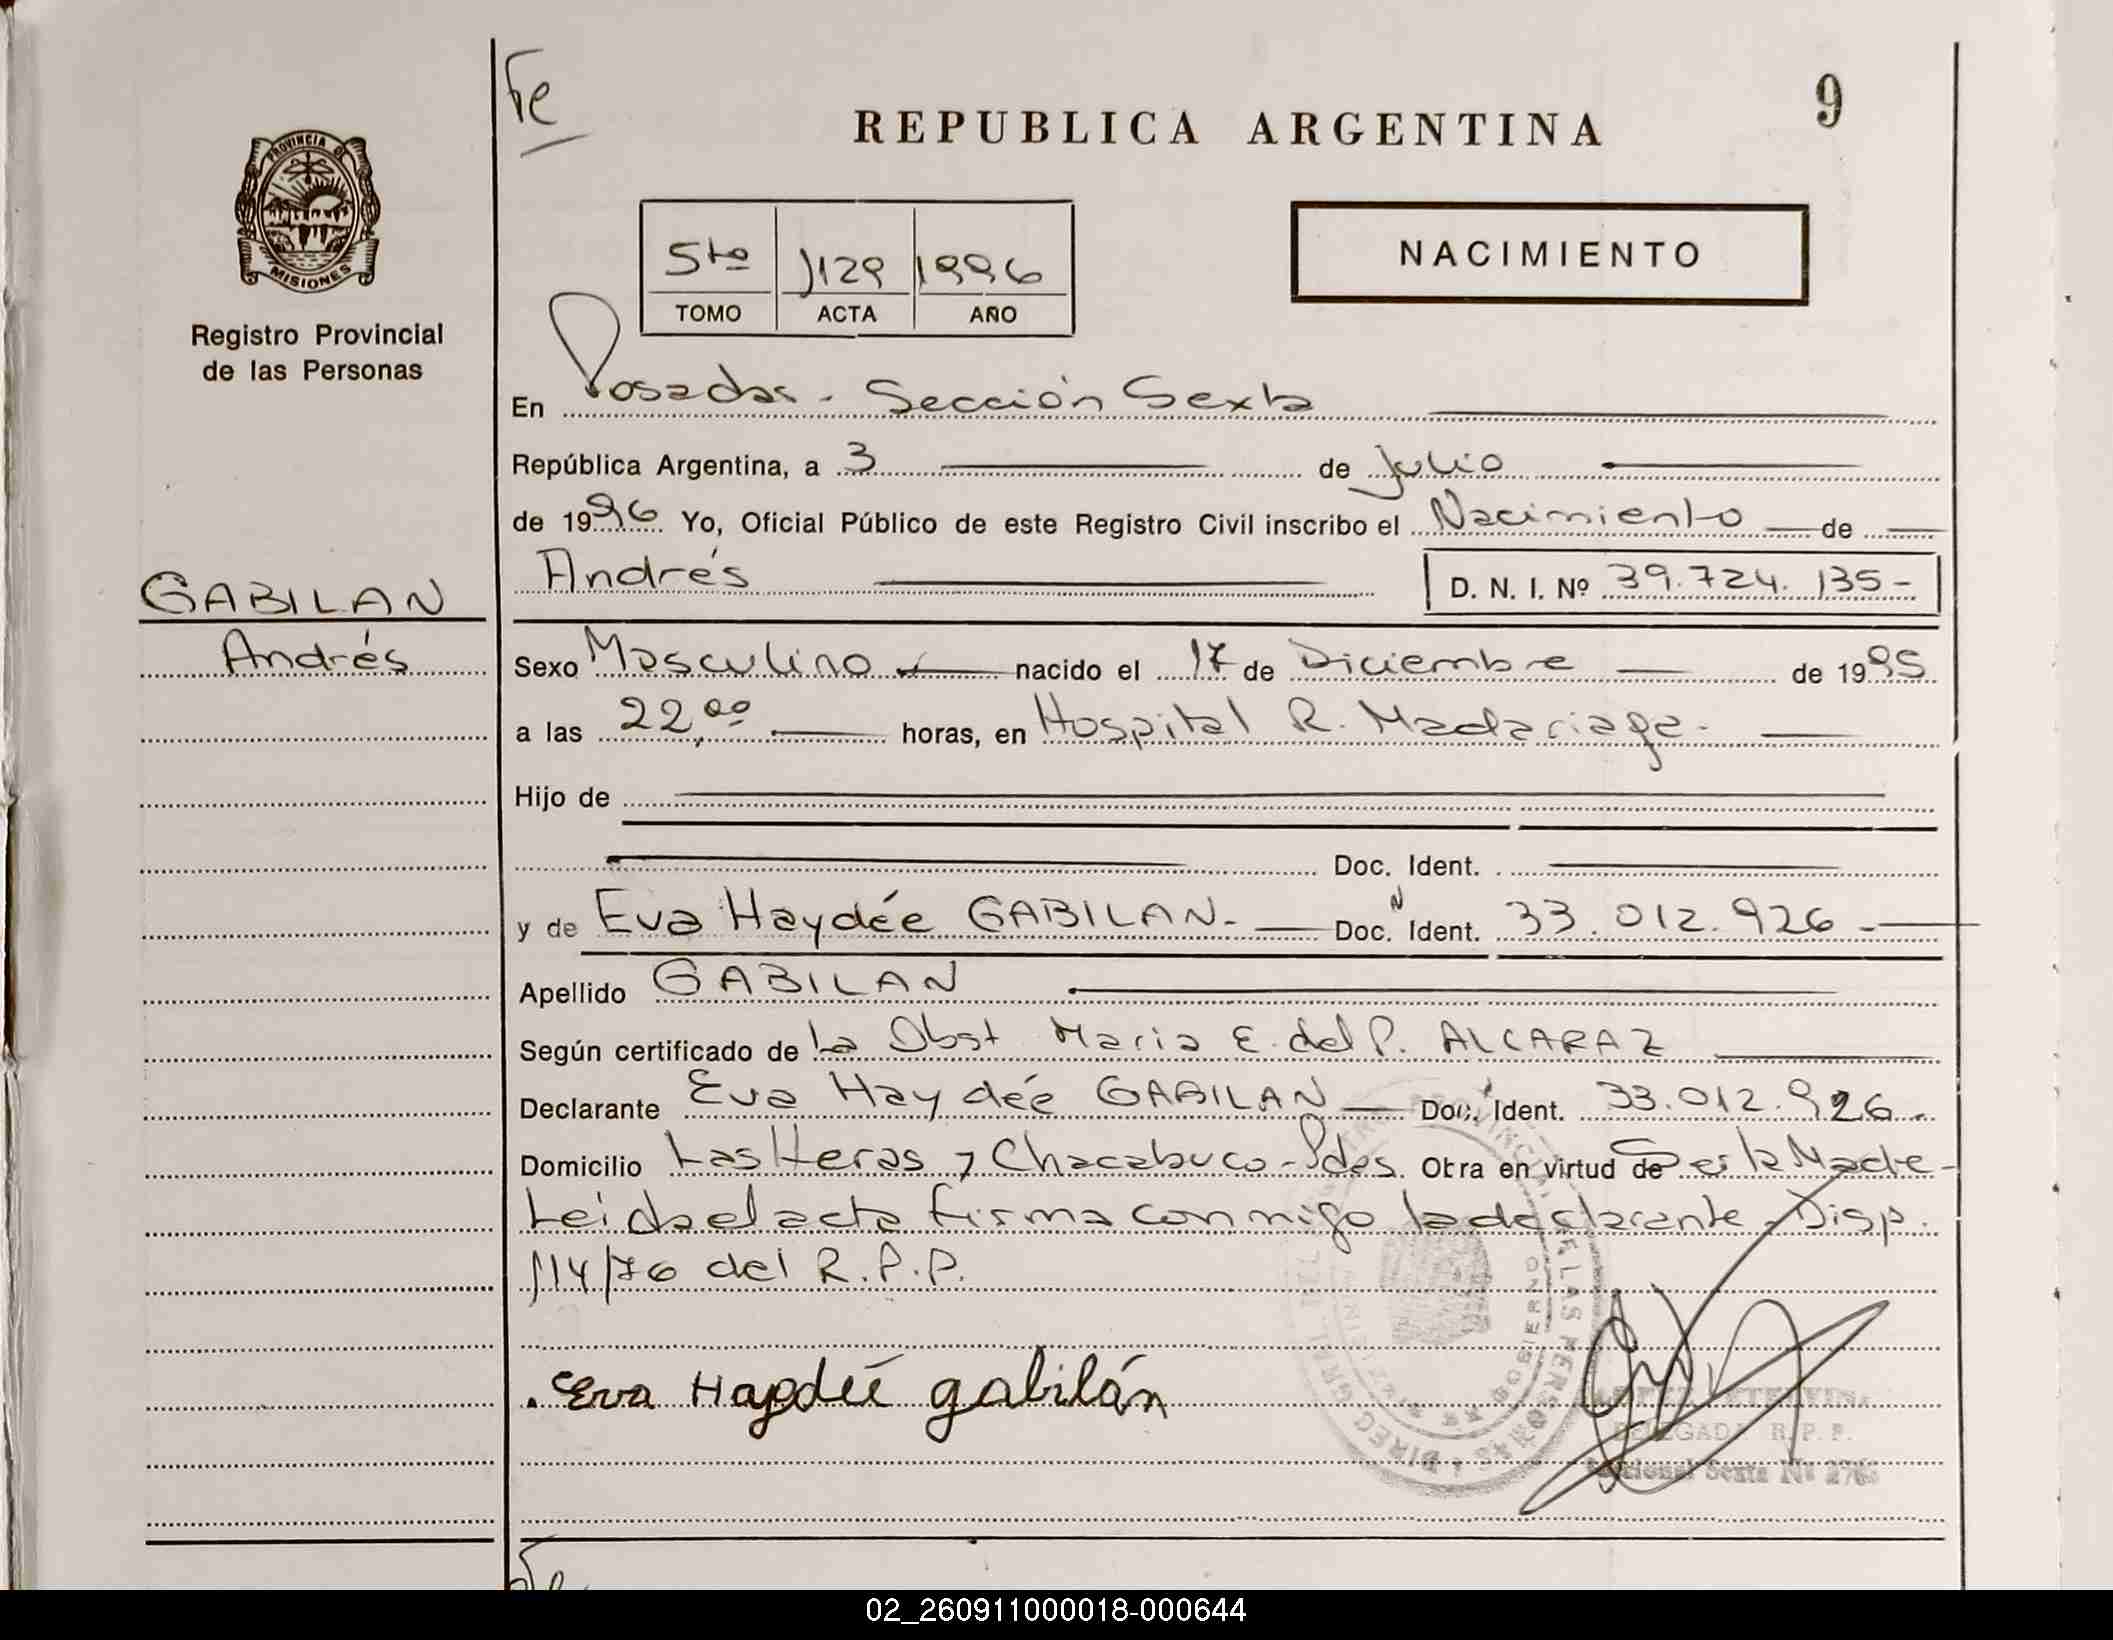 Fe
REPUBLICA ARGENTINA
9
PROVINCIA DE
MISIONES
Registro Provincial
de las Personas
5to 1129 1996
TOMO ACTA AÑO
NACIMIENTO
En Posadas - Sección Sexta
República Argentina, a 3 de Julio
de 1996 Yo, Oficial Público de este Registro Civil inscribo el Nacimiento de
Andrés D. N. I. Nº 39.724.135-
GABILAN
Andrés
Sexo Masculino nacido el 17 de Diciembre de 1995
a las 22,00 horas, en Hospital R. Madariaga.
Hijo de
Doc. Ident.
y de Eva Haydée GABILAN- Doc. Ident. 33.012.926-
Apellido GABILAN
Según certificado de La Obst Maria E. del P. ALCARAZ
Declarante Eva Haydée GABILAN Doc. Ident. 33.012.926-
Domicilio Las Heras y Chacabuco - Pdas. Otra en virtud de Ser la Madre-
Leida el acta firma conmigo la declarante. Disp.
114/76 del R.P.P.
Eva Haydeé gabilán
DELEGADA R. P. P.
Seccional Sexta Nº
02_260911000018-000644